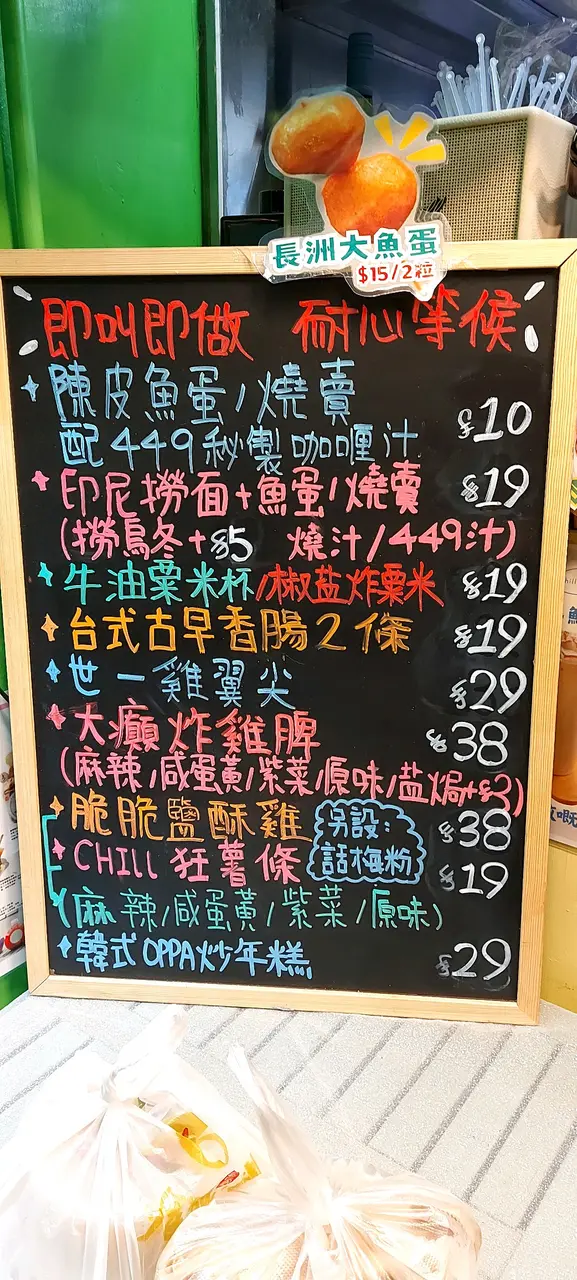 長洲大魚蛋
$15/2粒
即叫即做 耐心等候
陳皮魚蛋/燒賣
配449秘製咖喱汁 $10
印尼撈面+魚蛋/燒賣 $19
(撈烏冬+$5 燒汁/449汁)
牛油粟米杯/椒盐炸粟米 $19
台式古早香腸2條 $19
世一雞翼尖 $29
大癲炸雞脾 $38
(麻辣/咸蛋黃/紫菜/原味/盐焗+$3)
脆脆鹽酥雞 $38
另設:
話梅粉
CHILL狂薯條 $19
(麻辣/咸蛋黃/紫菜/原味)
韓式OPPA炒年糕 $29